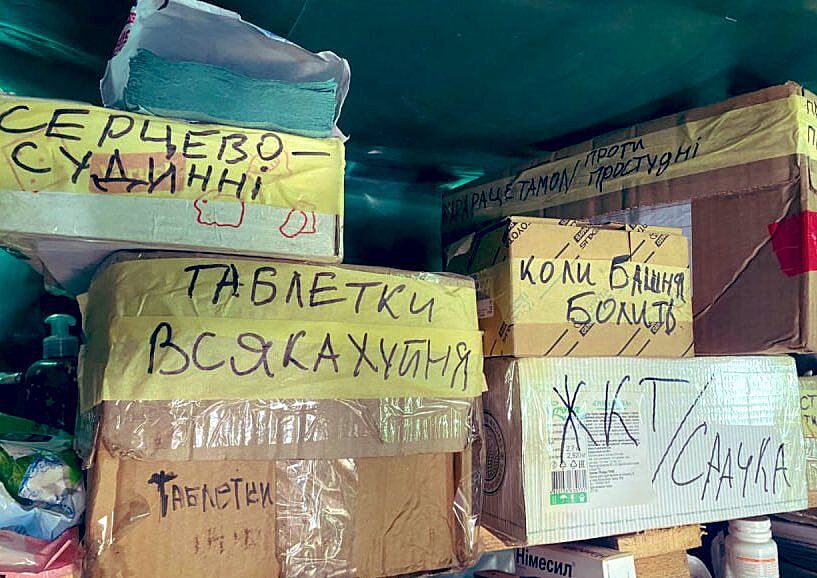 СЕРЦЕВО-
СУДИННІ
ПАРАЦЕТАМОЛ/ ПРОТИ
ПРОСТУДНІ
ТАБЛЕТКИ
ВСЯКАХУЙНЯ
ТАБЛЕТКИ
КОЛИ БАШНЯ
БОЛИТЬ
TOYOTA
ЖКТ/
СРАЧКА
Німесил